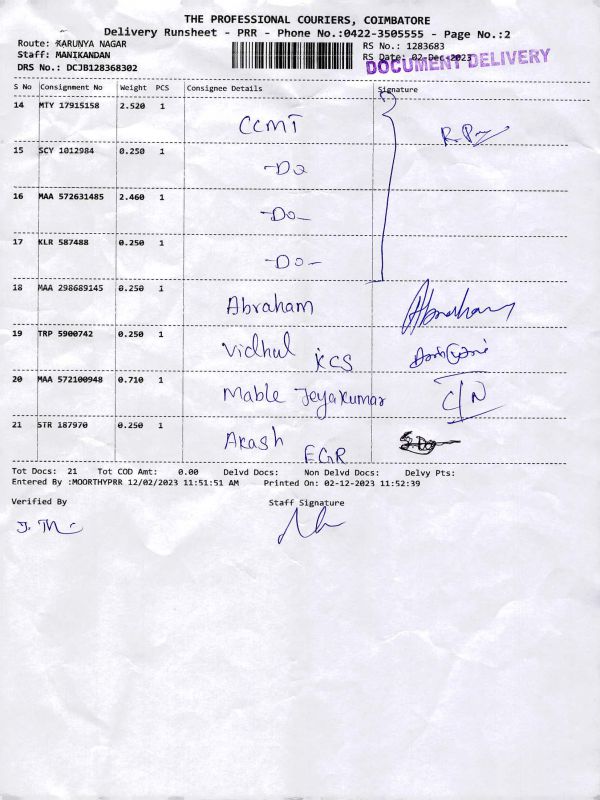 THE PROFESSIONAL COURIERS, COIMBATORE
Delivery Runsheet - PRR - Phone No.:0422-3505555 - Page No.:2
Route: KARUNYA NAGAR RS No.: 1283683
Staff: MANIKANDAN RS Date: 02-Dec-2023
DRS No.: DCJB128368302 DOCUMENT DELIVERY
S No Consignment No Weight PCS Consignee Details Signature
14 MTY 17915158 2.520 1 CCMT
15 SCY 1012984 0.250 1 -Do
16 MAA 572631485 2.460 1 -Do-
17 KLR 587488 0.250 1 -Do-
18 MAA 298689145 0.250 1 Abraham
19 TRP 5900742 0.250 1 Vidhul KCS
20 MAA 572100948 0.710 1 Mable Jeyakumar
21 STR 187970 0.250 1 Akash
Tot Docs: 21 Tot COD Amt: 0.00 Delvd Docs: Non Delvd Docs: Delvy Pts:
Entered By :MOORTHYPRR 12/02/2023 11:51:51 AM Printed On: 02-12-2023 11:52:39
Verified By Staff Signature